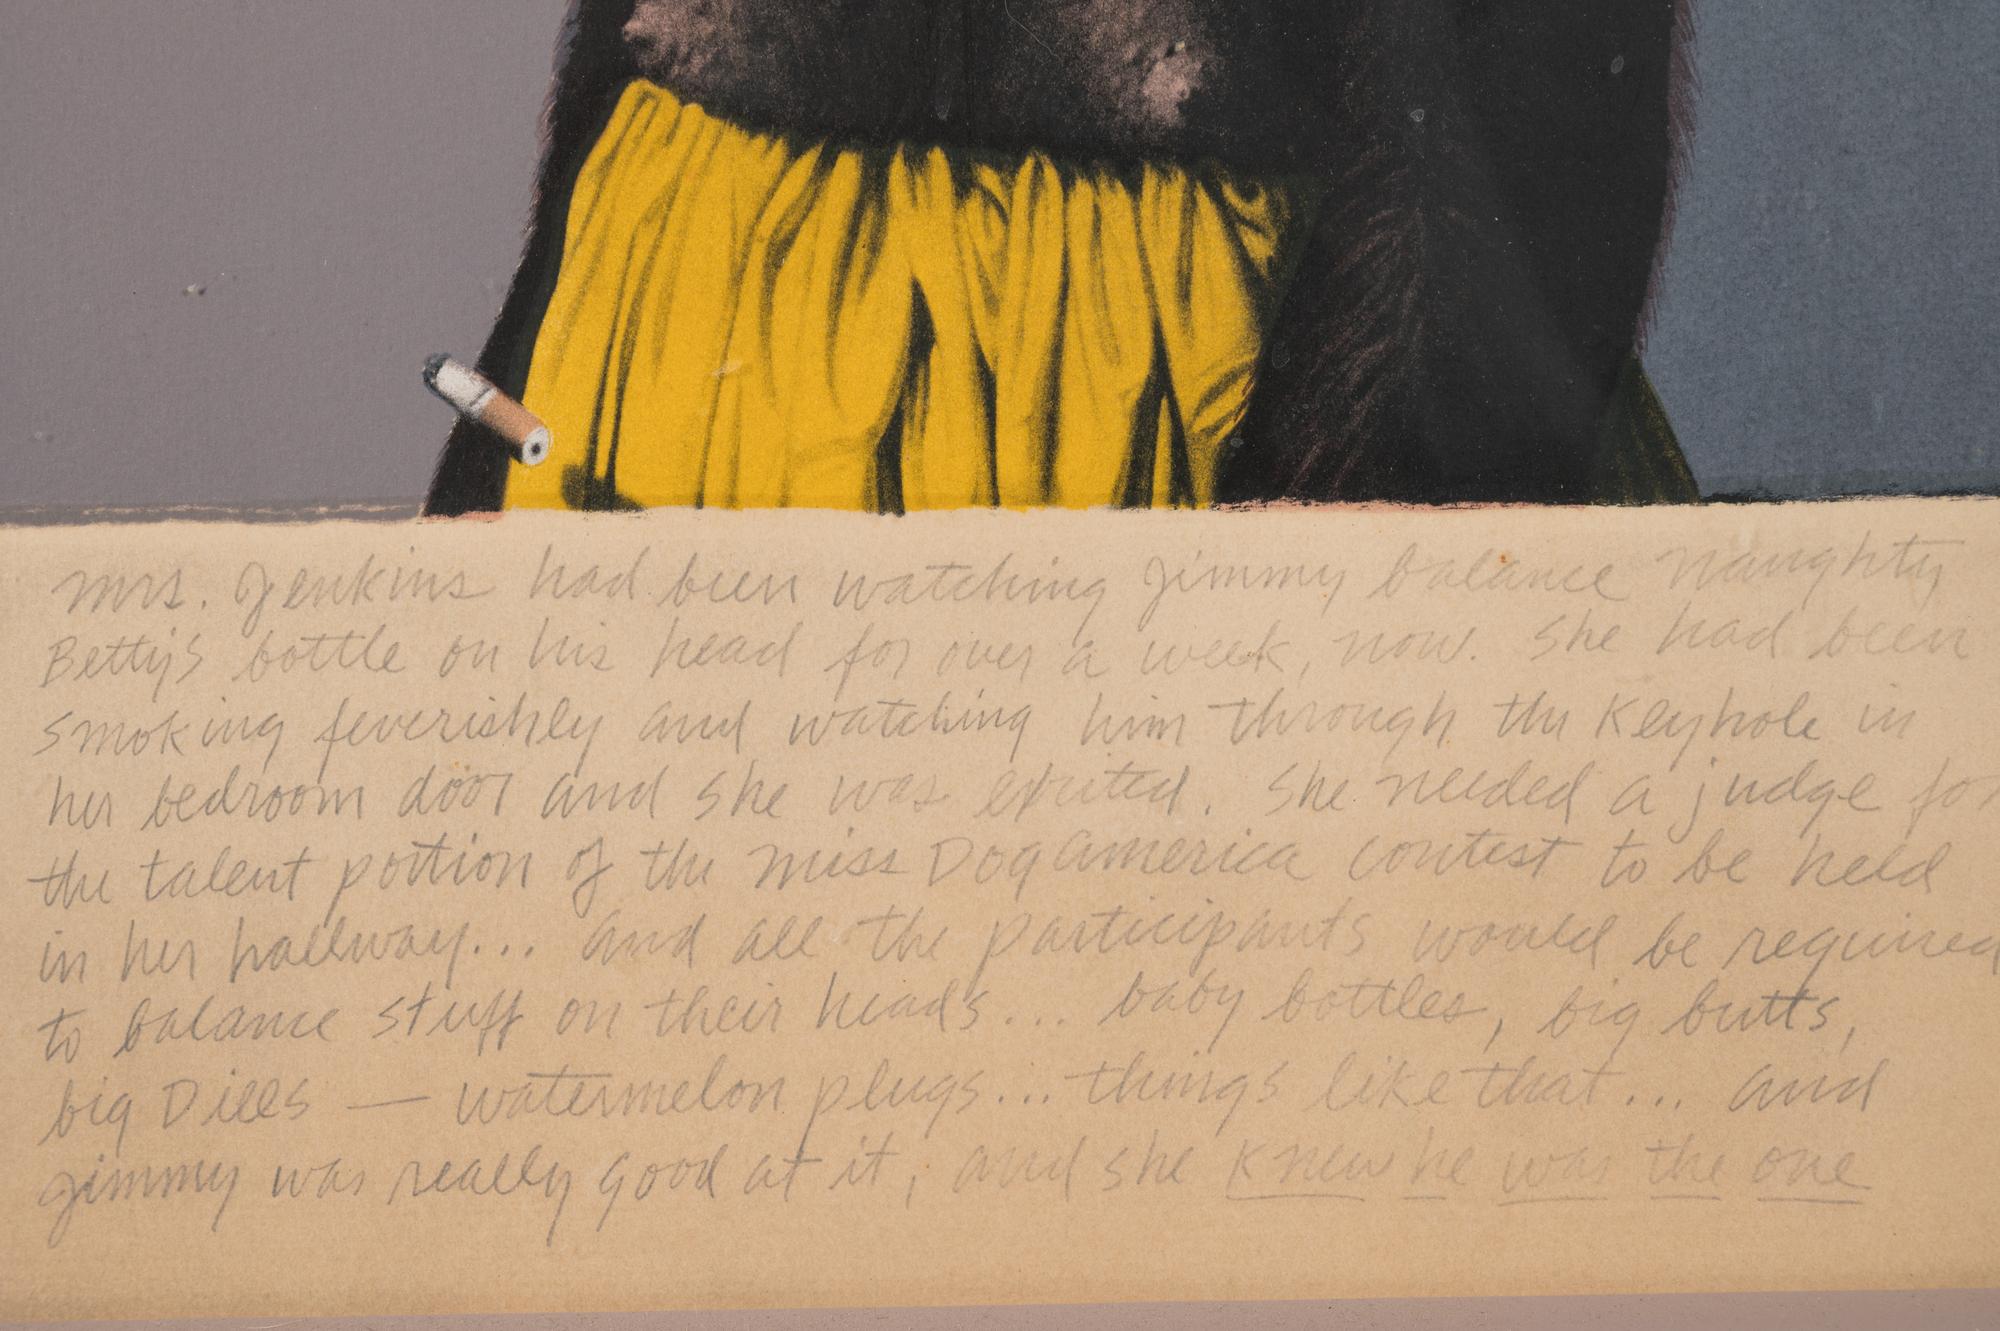 Mrs. Jenkins had been watching Jimmy balance Naughty
Betty's bottle on his head for over a week, now. She had been
smoking feverishly and watching him through the Keyhole in
her bedroom door and she was exited. She needed a judge for
the talent portion of the Miss Dog America contest to be held
in her hallway... and all the participants would be required
to balance stuff on their heads... baby bottles, big butts,
big Dills — watermelon plugs... things like that... and
Jimmy was really good at it, and she knew he was the one